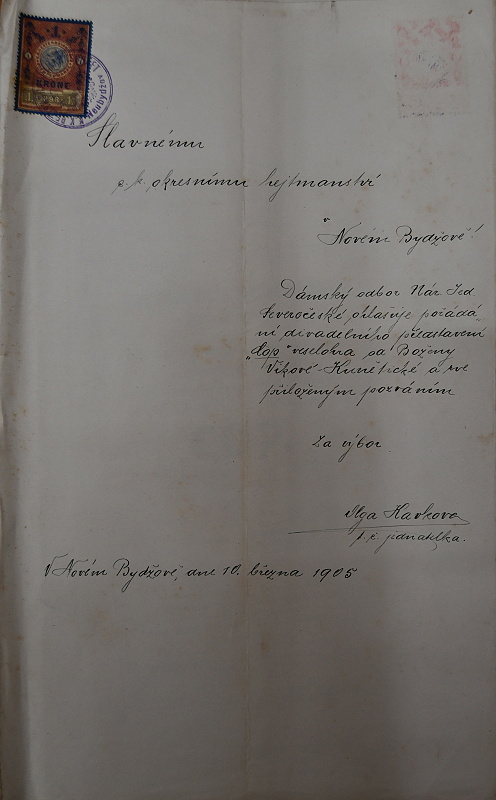 1
KRONE
Neubydžow
Slavnému
c. k. okresnímu hejtmanství
v
Novém Bydžově!
Dámský odbor Nár. Jed.
Severočeské ohlašuje pořádá-
ní divadelního představení
„Cop" veselohra od Boženy
Vikové-Kunětické a sve
přiloženým pozváním
Za výbor
Olga Havkova
t. č. jednatelka.
V Novém Bydžově, dne 10. března 1905